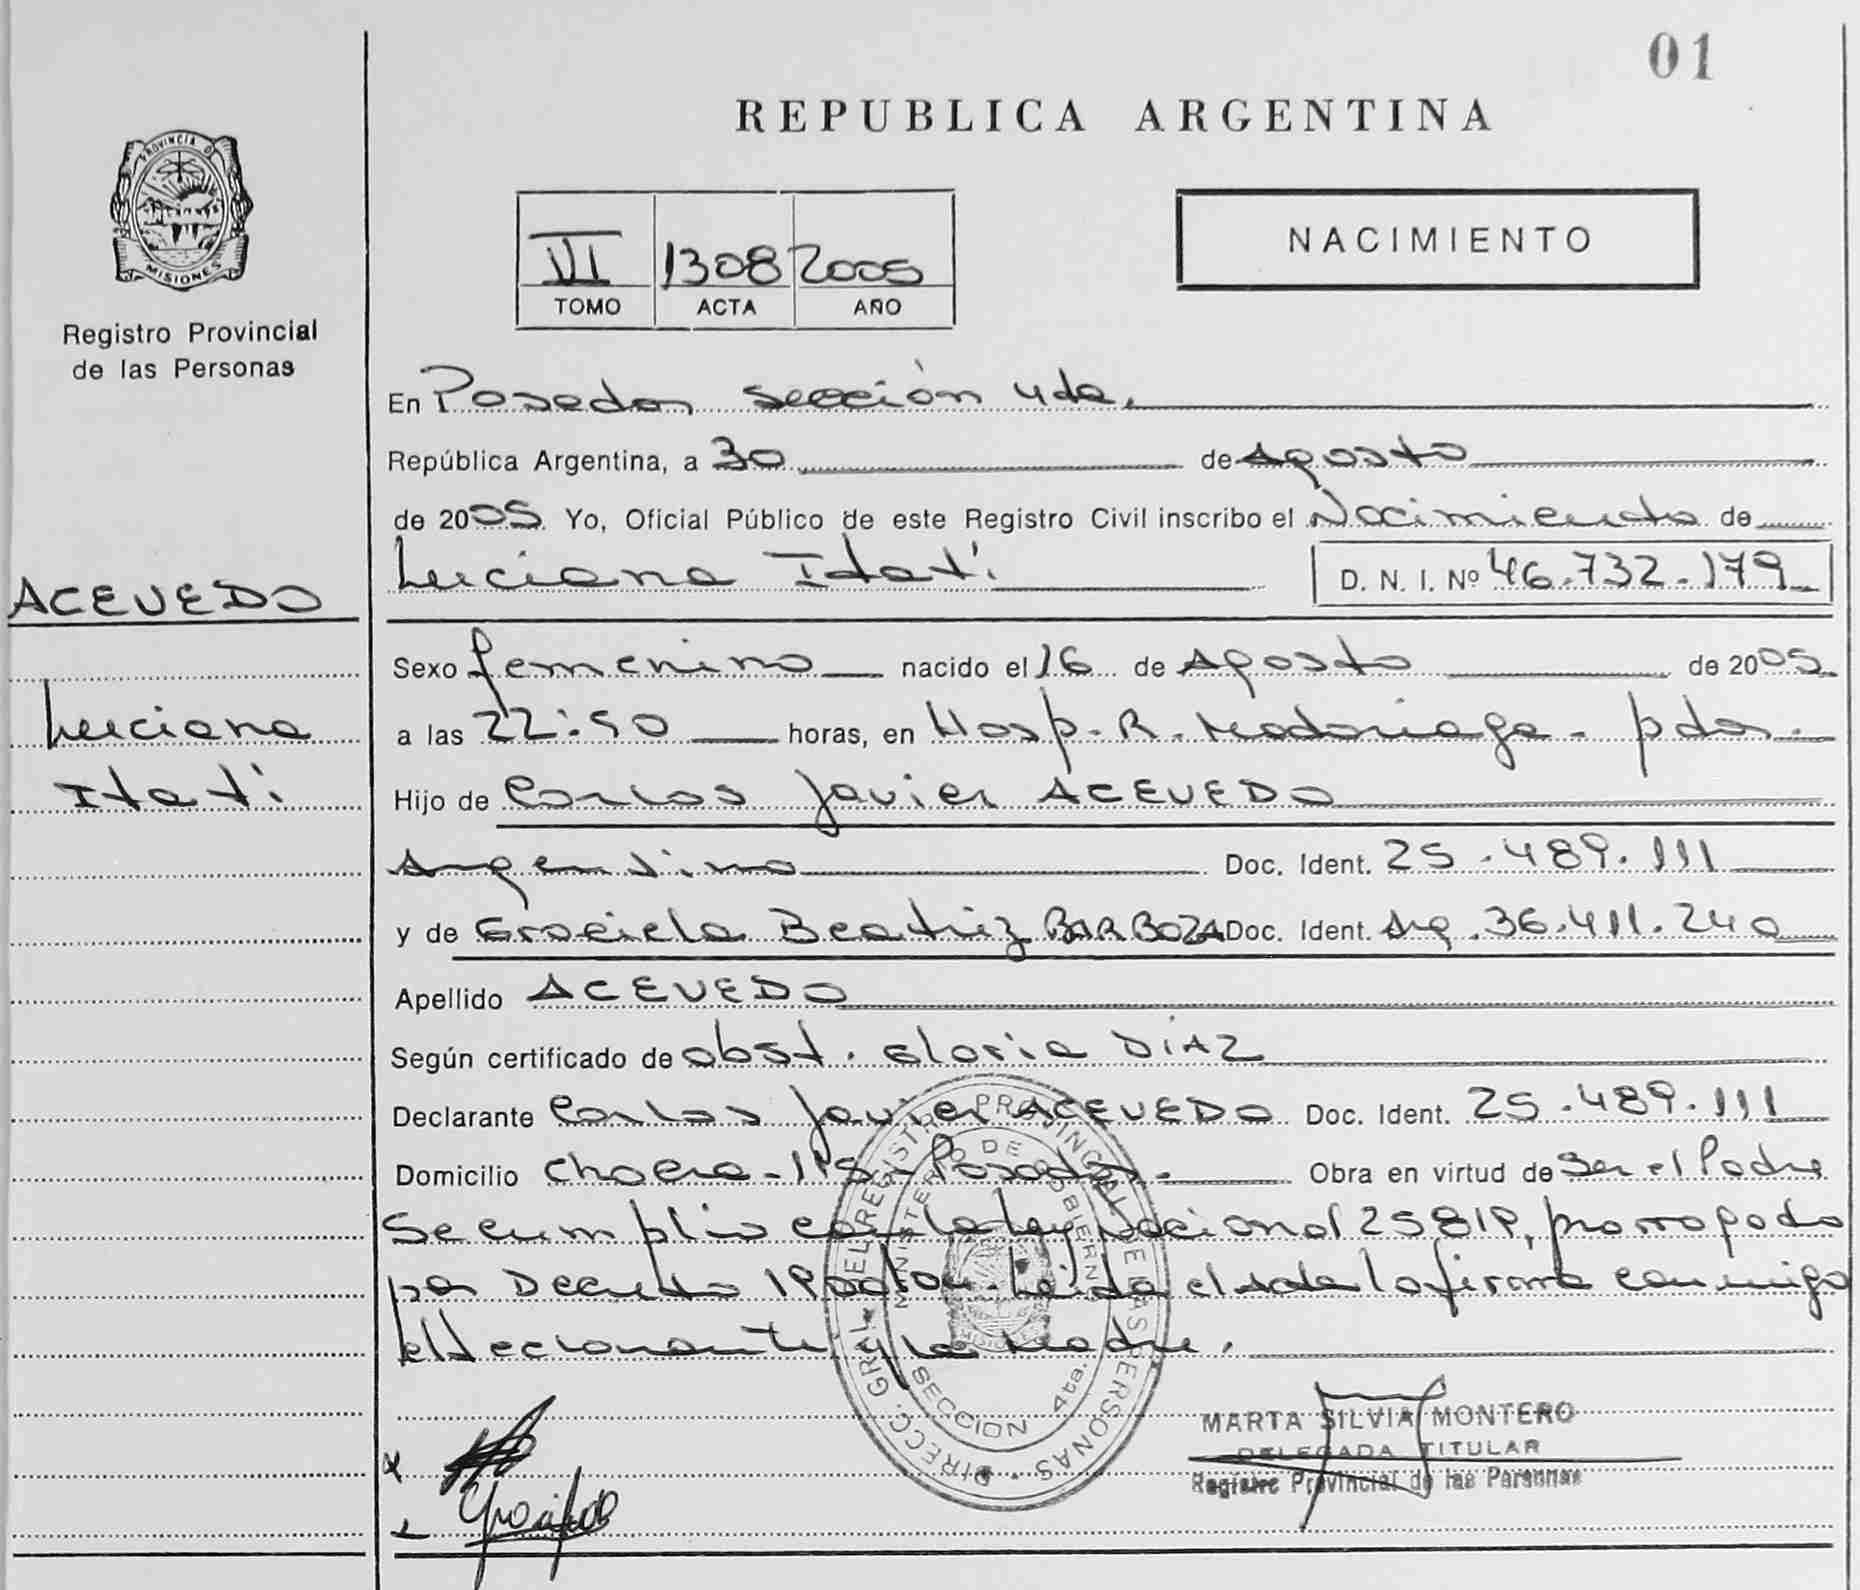 01
REPUBLICA ARGENTINA
PROVINCIA DE
MISIONES
Registro Provincial
de las Personas
III 1308 2005
TOMO ACTA AÑO
NACIMIENTO
En Posadas sección 4da.
República Argentina, a 30 de Agosto
de 2005 Yo, Oficial Público de este Registro Civil inscribo el Nacimiento de
Luciana Itatí D. N. I. Nº 46.732.179
ACEVEDO
Luciana
Itatí
Sexo femenino nacido el 16 de Agosto de 2005
a las 22:50 horas, en Hosp. R. Madariaga - pdas.
Hijo de Carlos Javier ACEVEDO
Argentino Doc. Ident. 25.489.111
y de Graciela Beatriz BARBOZA Doc. Ident. Arg. 36.411.240
Apellido ACEVEDO
Según certificado de obst. Gloria DÍAZ
Declarante Carlos Javier ACEVEDO Doc. Ident. 25.489.111
Domicilio Chacra - 115 - Posadas.- Obra en virtud de ser el Padre
Se cumplio con la ley Nacional 25819, prorrogado
por Decreto 1900/04. Leída el acta la firma conmigo
el declarante y la Madre.
DIRECC. GRAL. DEL REGISTRO PROVINCIAL DE LAS PERSONAS
MINISTERIO DE GOBIERNO
SECCION 4ta.
MARTA SILVIA MONTERO
DELEGADA TITULAR
Registro Provincial de las Personas